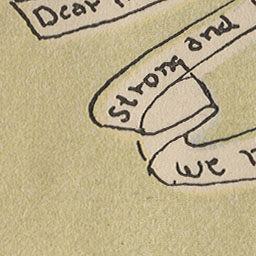 Dear
Strong and
we